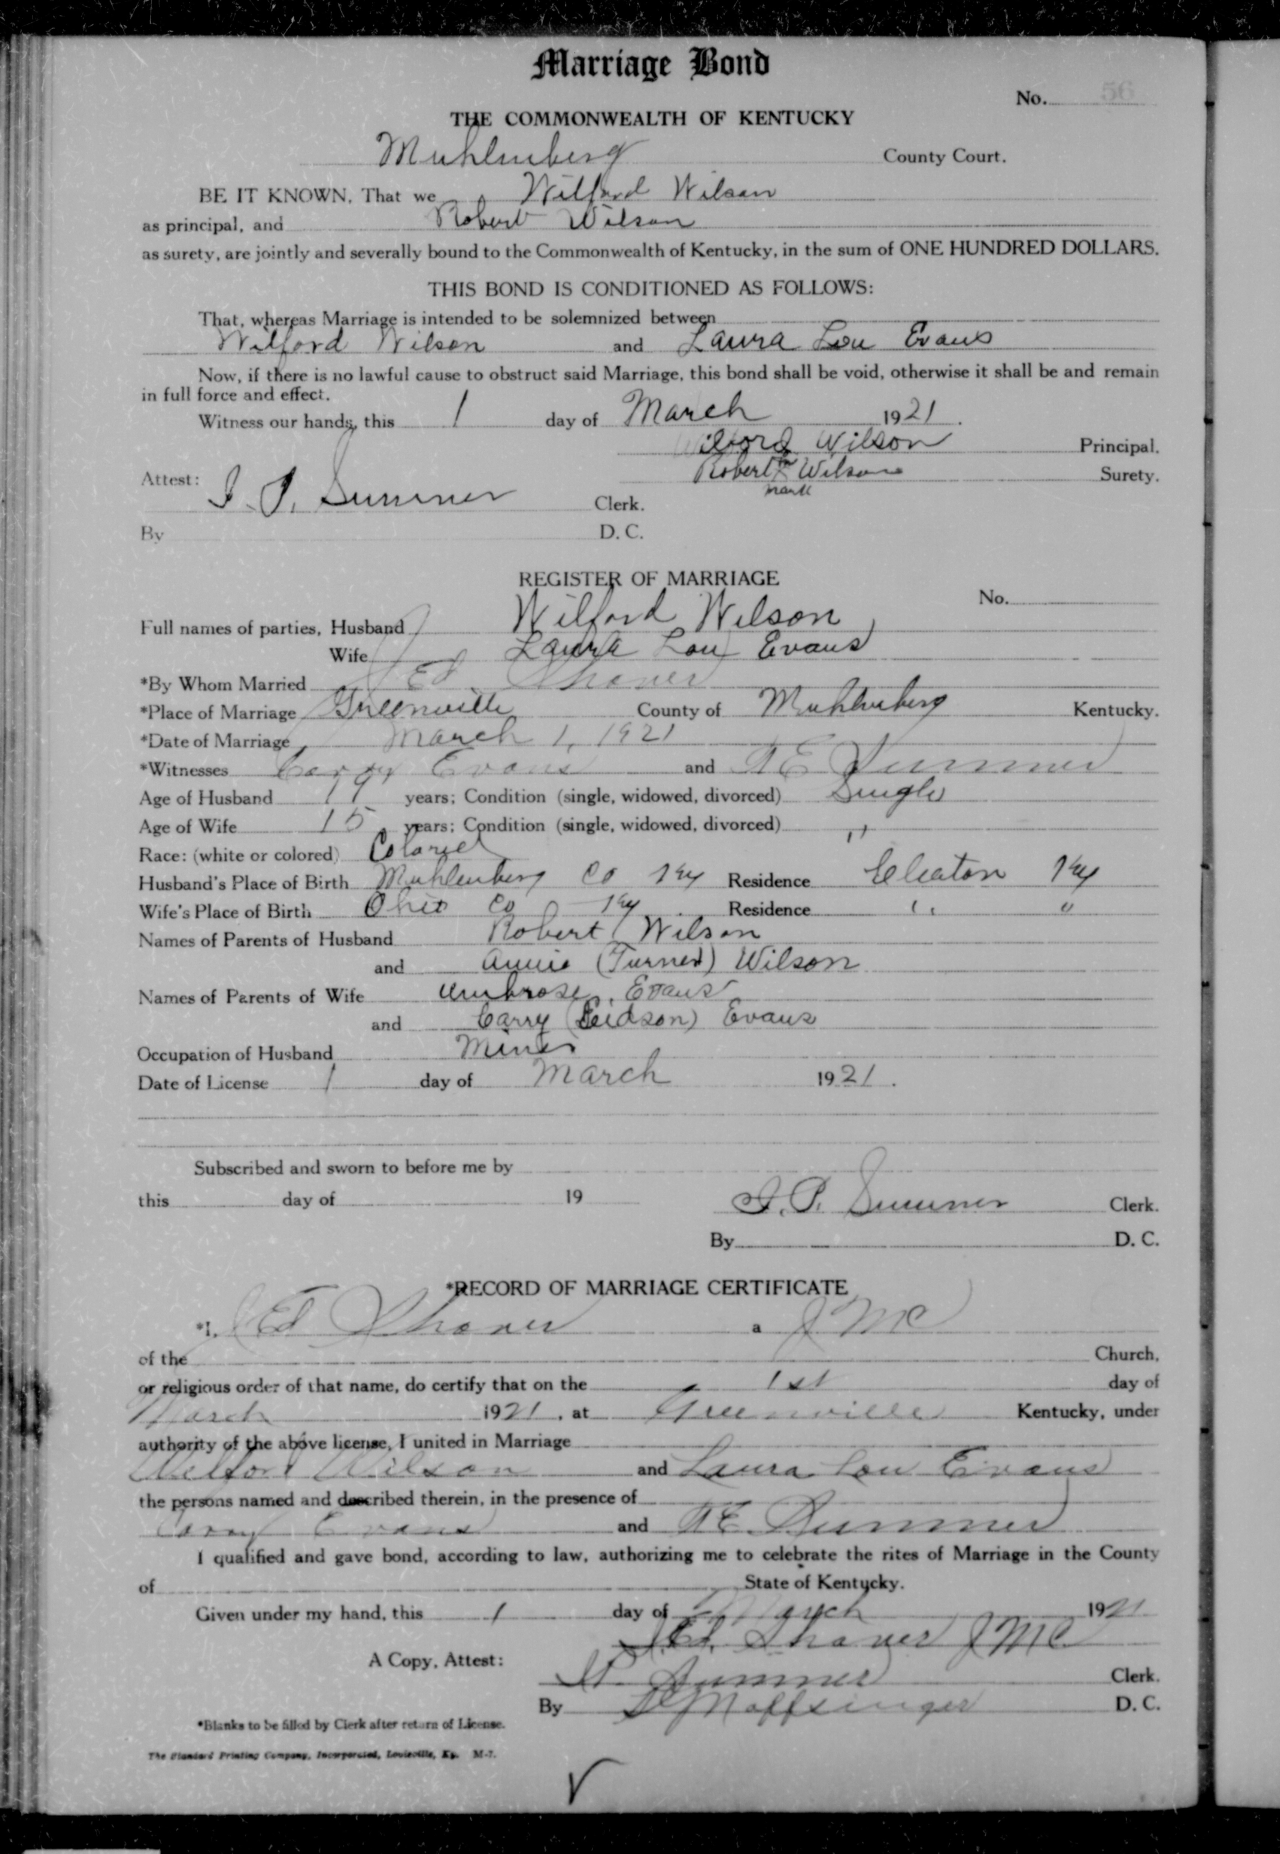 Marriage Bond
No. 56
THE COMMONWEALTH OF KENTUCKY
Muhlenberg County Court.
BE IT KNOWN, That we Wilford Wilson
as principal, and Robert Wilson
as surety, are jointly and severally bound to the Commonwealth of Kentucky, in the sum of ONE HUNDRED DOLLARS.
THIS BOND IS CONDITIONED AS FOLLOWS:
That, whereas Marriage is intended to be solemnized between
Wilford Wilson and Laura Lou Evans
Now, if there is no lawful cause to obstruct said Marriage, this bond shall be void, otherwise it shall be and remain
in full force and effect.
Witness our hands, this 1 day of March 1921.
Wilford Wilson Principal.
Robert his x Wilson Surety.
mark
Attest: I. P. Summer Clerk.
By D. C.
REGISTER OF MARRIAGE
No.
Full names of parties, Husband Wilford Wilson
Wife Laura Lou Evans
*By Whom Married J Ed Shaver
*Place of Marriage Greenville County of Muhlenberg Kentucky.
*Date of Marriage March 1, 1921
*Witnesses Carry Evans and A E Summer
Age of Husband 19 years; Condition (single, widowed, divorced) Single
Age of Wife 15 years; Condition (single, widowed, divorced) "
Race: (white or colored) Colored
Husband's Place of Birth Muhlenberg Co Ky Residence Cleaton Ky
Wife's Place of Birth Ohio Co Ky. Residence " "
Names of Parents of Husband Robert Wilson
and Annie (Turner) Wilson
Names of Parents of Wife Umbrose Evans
and Carry (Eidson) Evans
Occupation of Husband Miner
Date of License 1 day of March 1921.
Subscribed and sworn to before me by
this day of 19
I. P. Summer Clerk.
By D. C.
*RECORD OF MARRIAGE CERTIFICATE
*I, J Ed Shaver a J M C
of the Church,
or religious order of that name, do certify that on the 1st day of
March 1921, at Greenville Kentucky, under
authority of the above license, I united in Marriage
Wilford Wilson and Laura Lou Evans
the persons named and described therein, in the presence of
Carry Evans and A E Summer
I qualified and gave bond, according to law, authorizing me to celebrate the rites of Marriage in the County
of State of Kentucky.
Given under my hand, this 1 day of March 1921
J. Ed. Shaver J M C
A Copy, Attest: I P Summer Clerk.
By Noffsinger D. C.
*Blanks to be filled by Clerk after return of License.
The Standard Printing Company, Incorporated, Louisville, Ky. M-7.